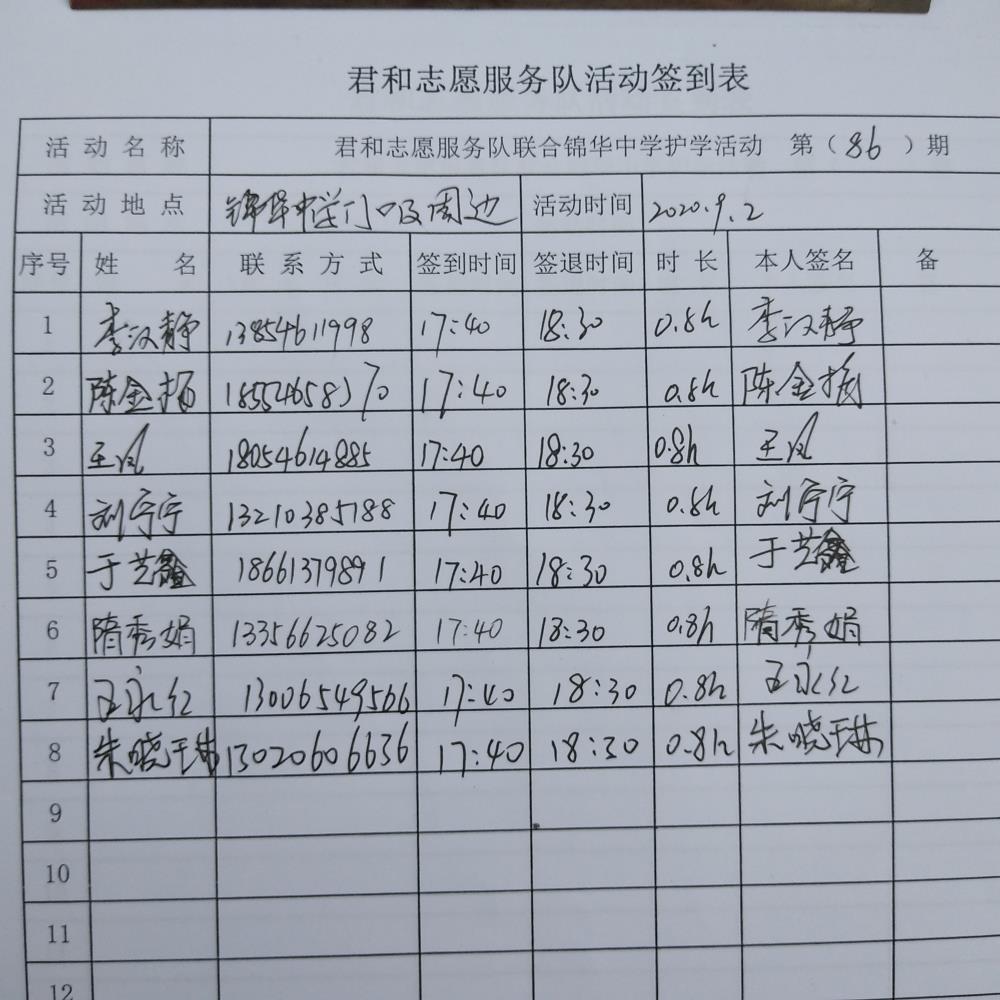 君和志愿服务队活动签到表
活动名称 君和志愿服务队联合锦华中学护学活动 第（86）期
活动地点 锦华中学门口及周边 活动时间 2020.9.2
序号 姓名 联系方式 签到时间 签退时间 时长 本人签名 备
1 李汉静 13854611998 17:40 18:30 0.8h 李汉静
2 陈金扬 17:40 18:30 0.8h 陈金扬
3 王凤 18054614885 17:40 18:30 0.8h 王凤
4 刘宁宁 13210385188 17:40 18:30 0.8h 刘宁宁
5 于艺鑫 18661379891 17:40 18:30 0.8h 于艺鑫
6 隋秀娟 13356625082 17:40 18:30 0.8h 隋秀娟
7 王永红 13006549566 17:40 18:30 0.8h 王永红
8 朱晓琳 13020606636 17:40 18:30 0.8h 朱晓琳
9
10
11
12